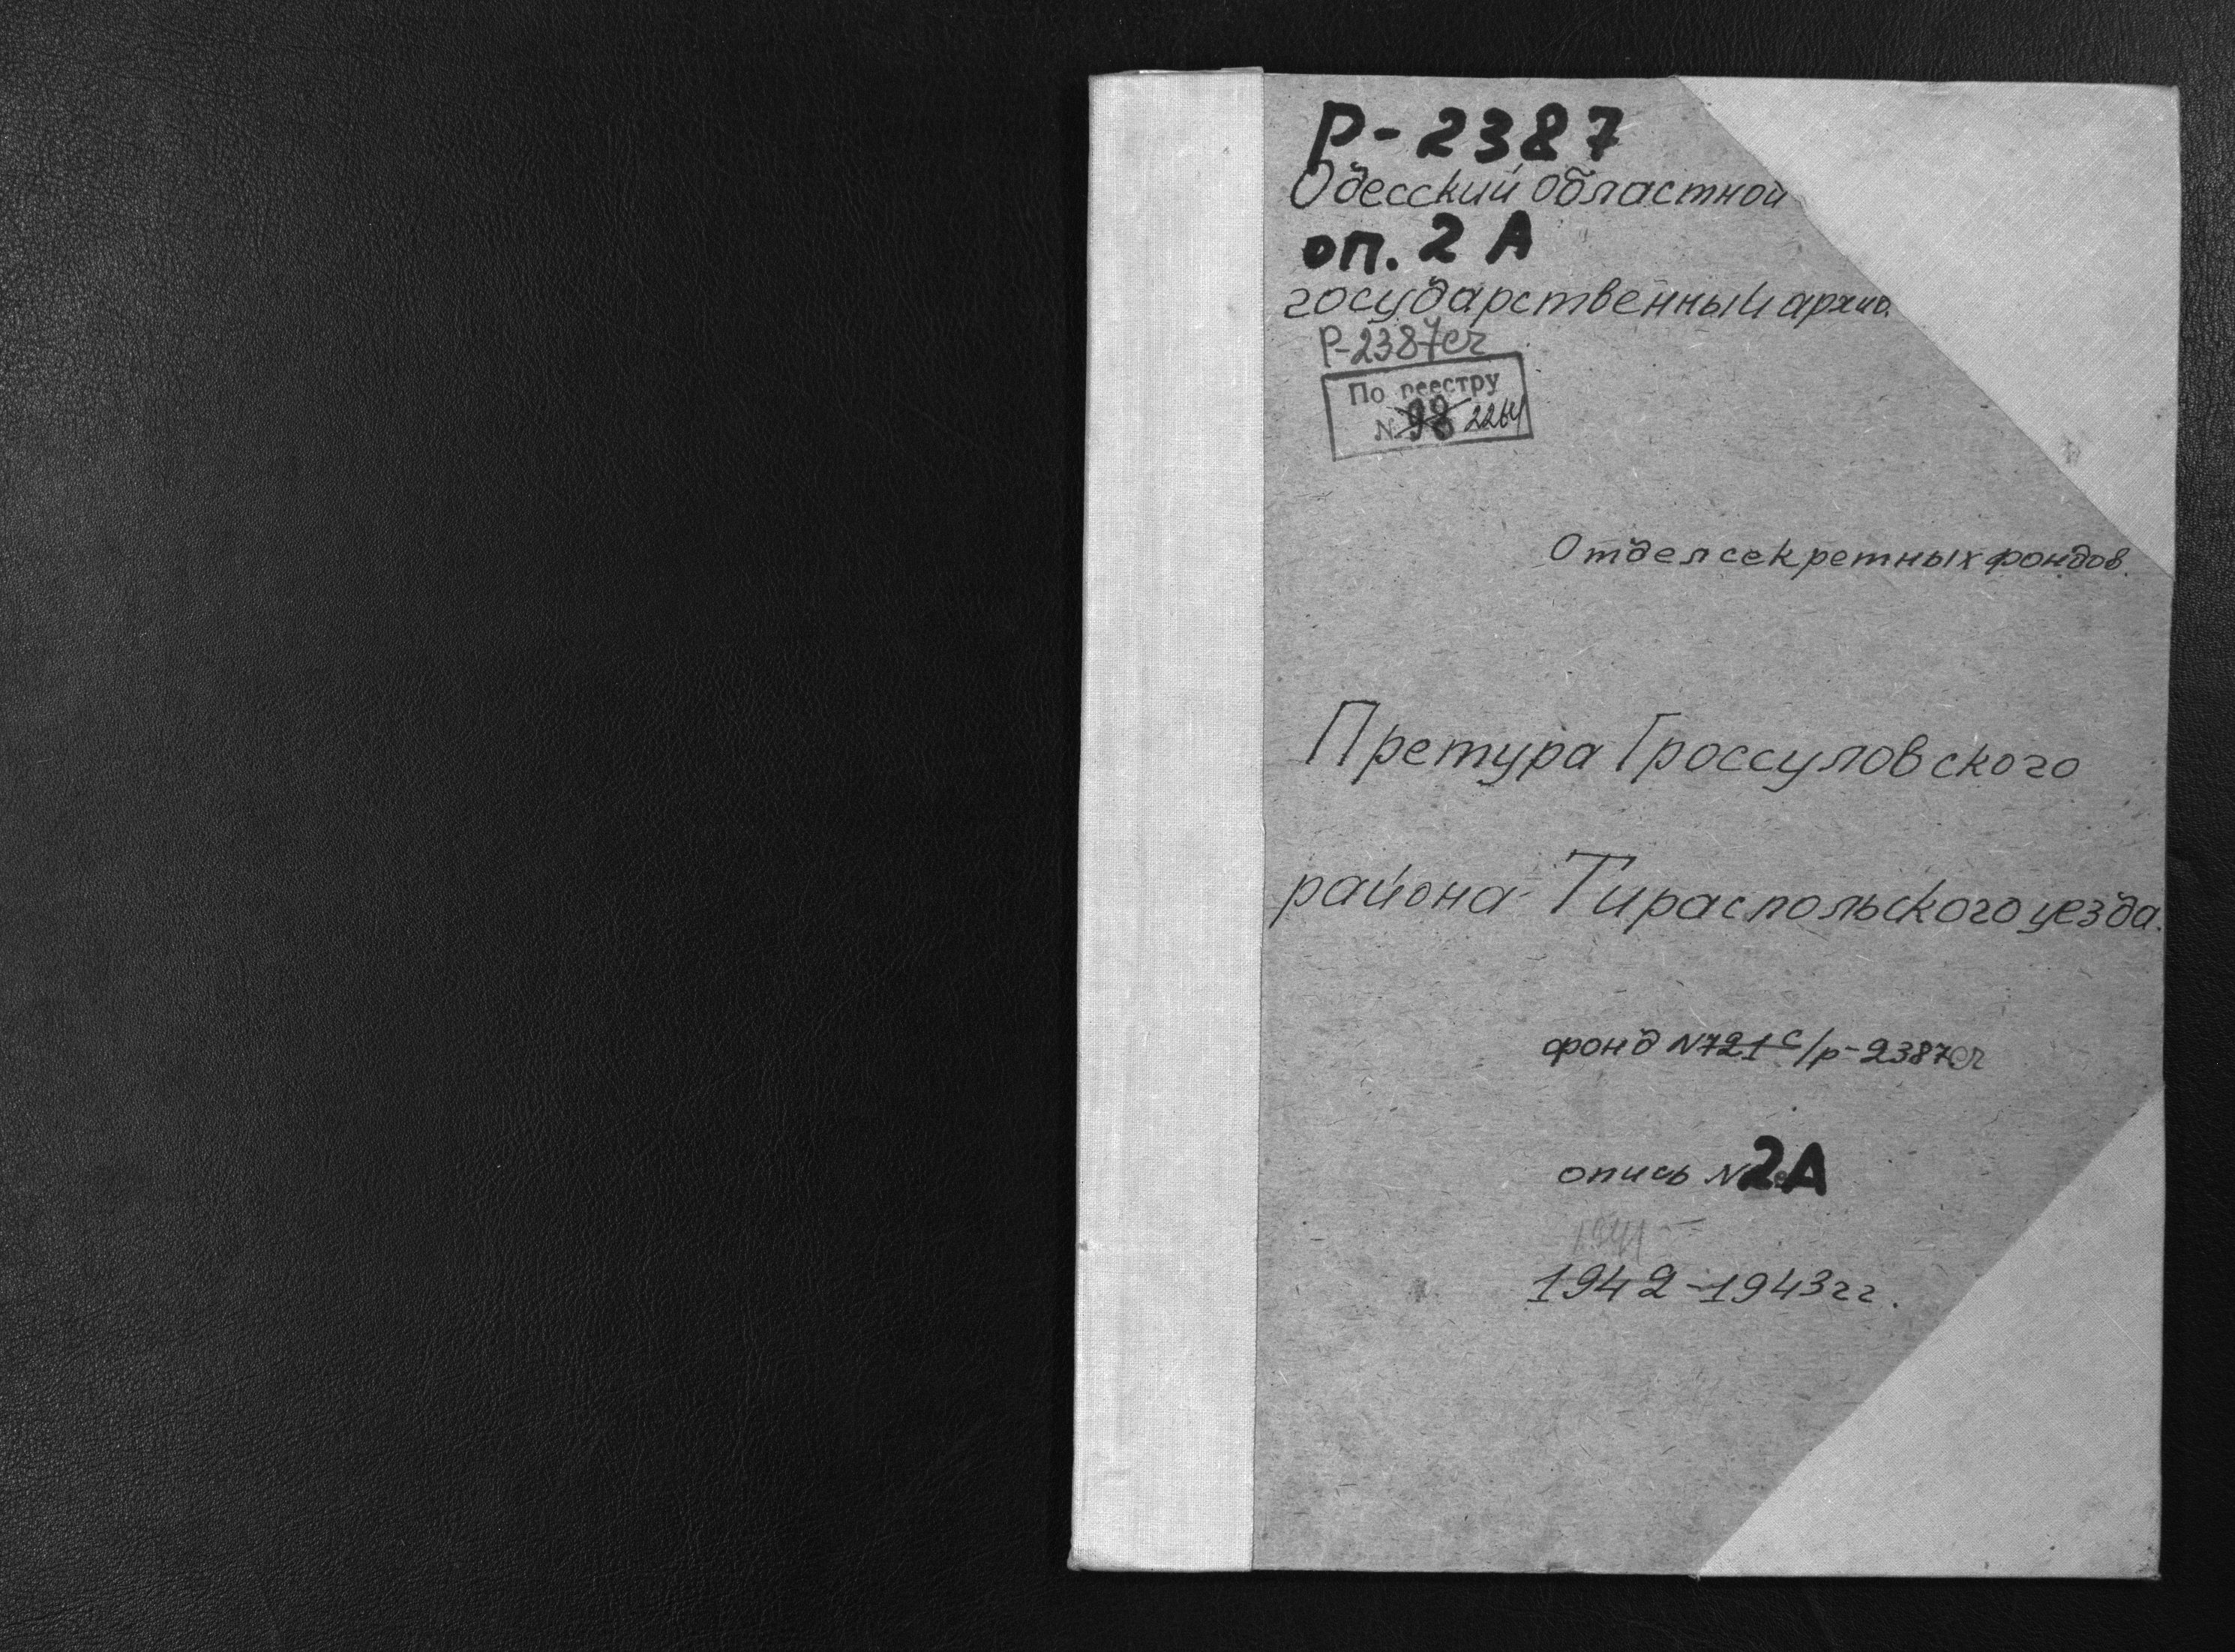 Р-2387
Одесский областной
оп. 2 А
государственный архив.
Р-2387сч
По реестру
N 98 2264
Отдел секретных фондов.
Претура Гроссуловского
района Тираспольского уезда.
фонд N721с/р-2387сч
опись N 2А
1941-
1942-1943гг.